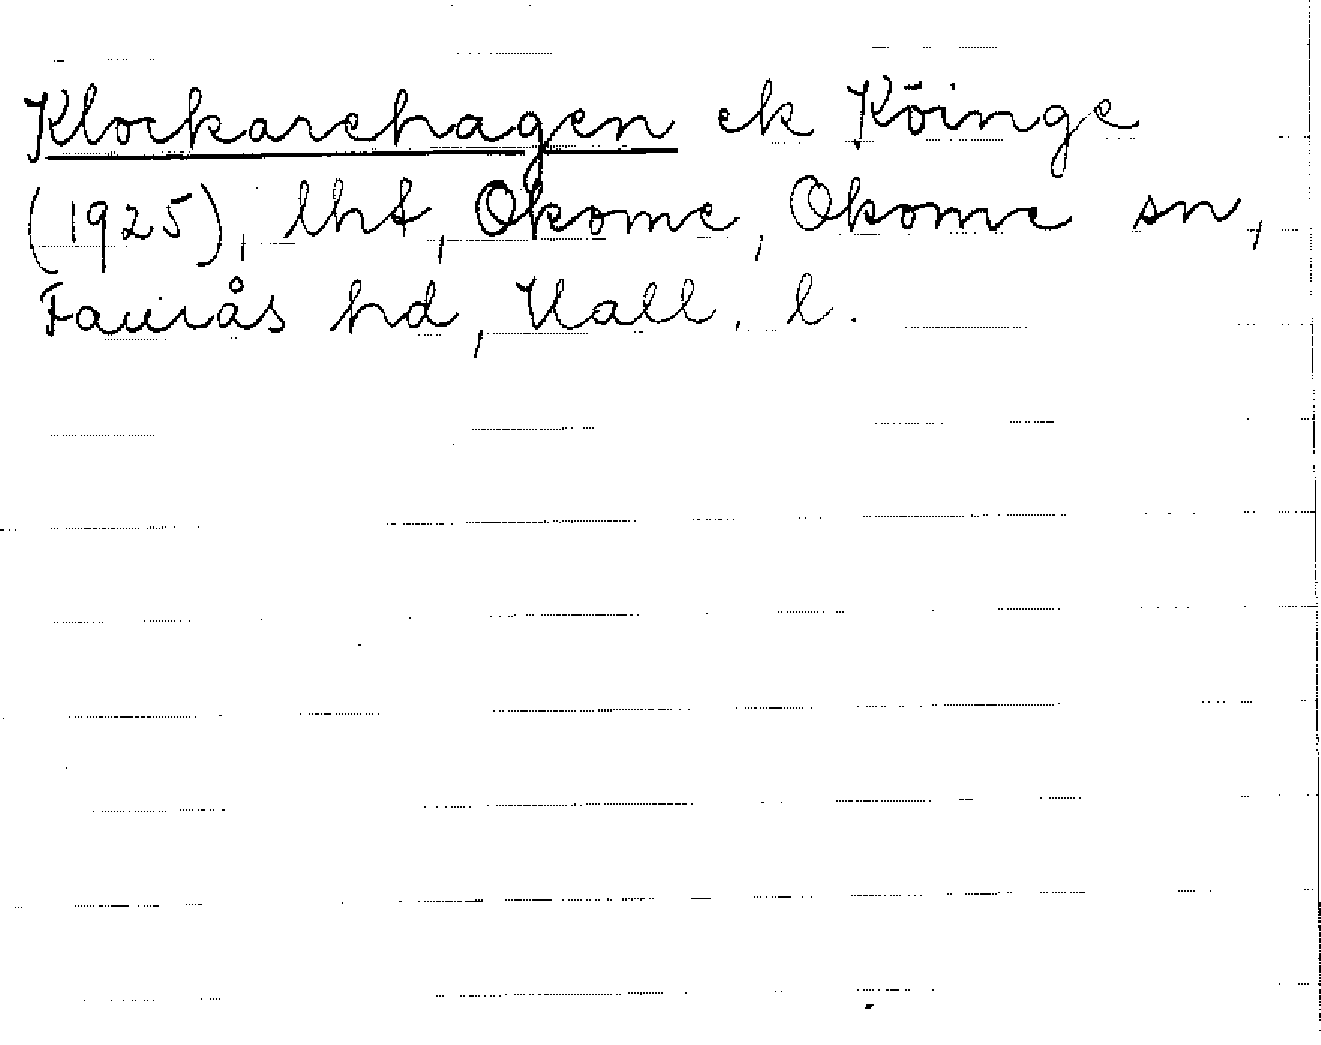 Klockarehagen ek Köinge
(1925), lht, Okome, Okome sn,
Faurås hd, Hall. l.